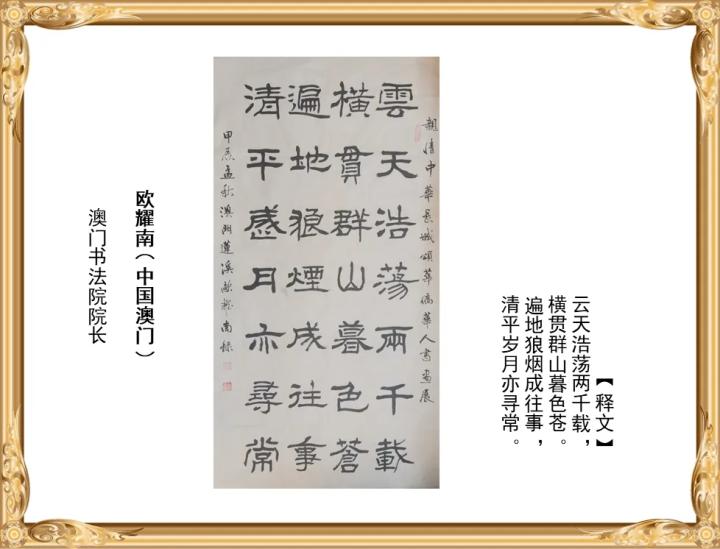 【释文】
云天浩荡两千载，
横贯群山暮色苍。
遍地狼烟成往事，
清平岁月亦寻常。
親情中華長城頌華僑華人書畫展
雲天浩蕩兩千載
橫貫群山暮色蒼
遍地狼煙成往事
清平歲月亦尋常
甲辰孟秋澳門蓮溪歐耀南錄
欧耀南（中国澳门）
澳门书法院院长